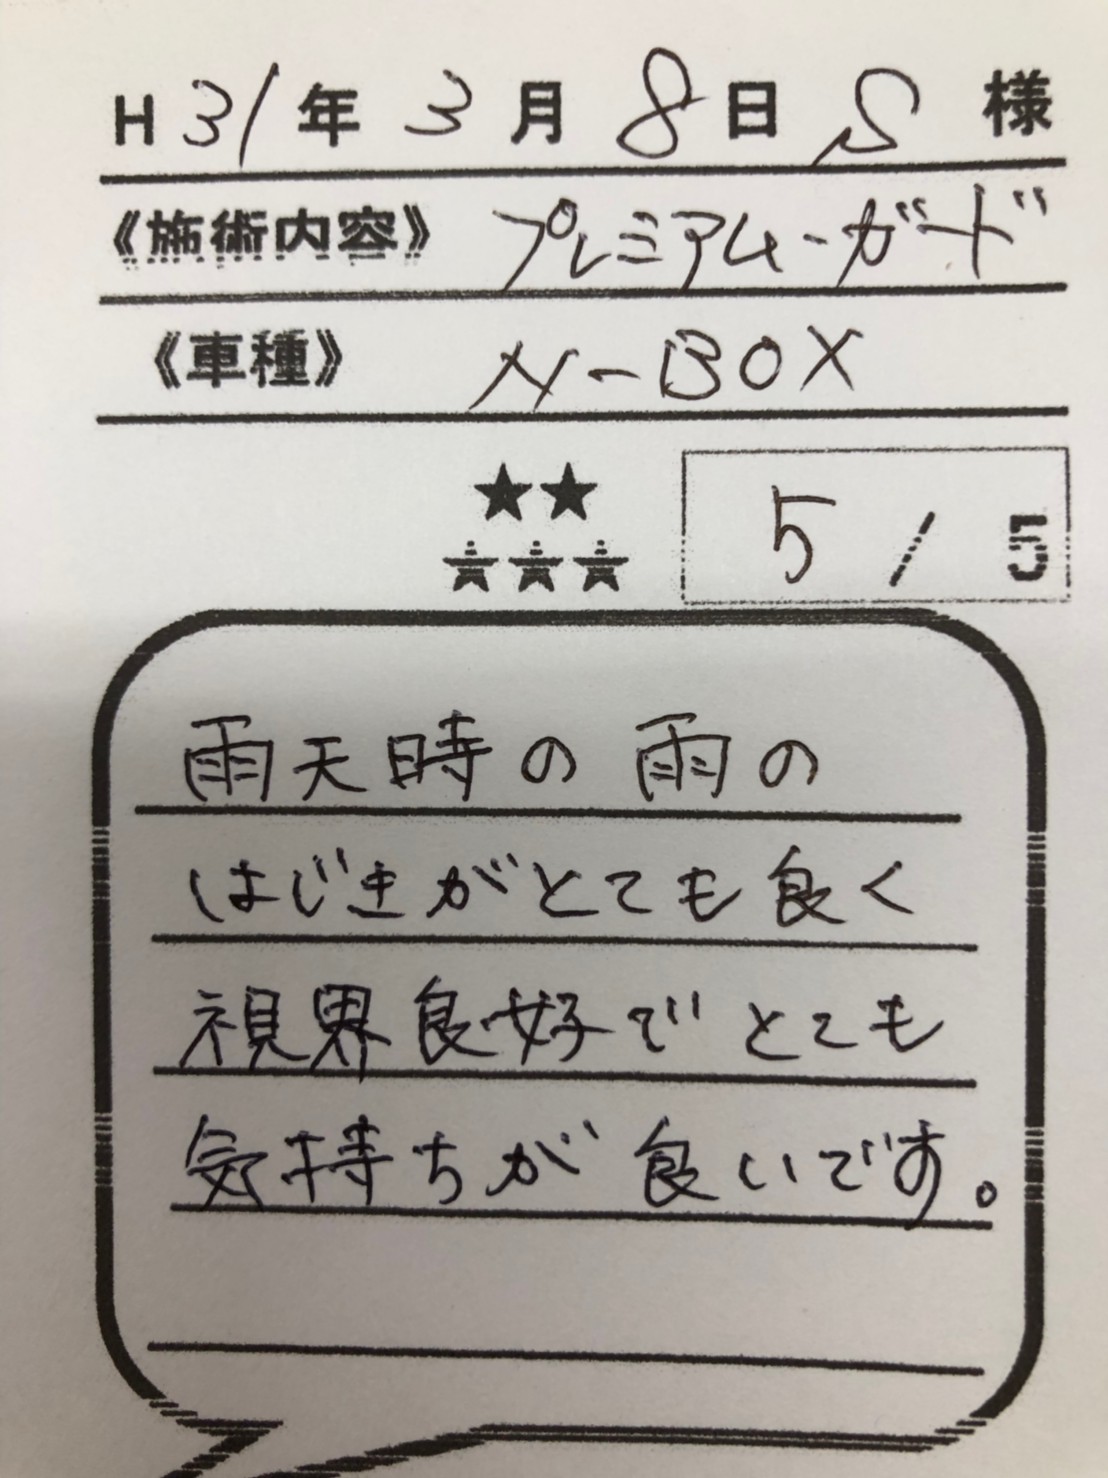 H31年3月8日 S 様
《施術内容》 プレミアム・ガード
《車種》 N-BOX
★★
★★★ 5/5
雨天時の雨の
はじきがとても良く
視界良好でとても
気持ちが良いです。